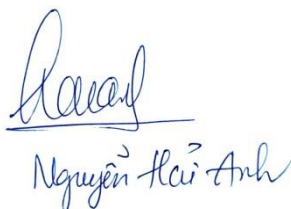 Nguyễn Hải Anh